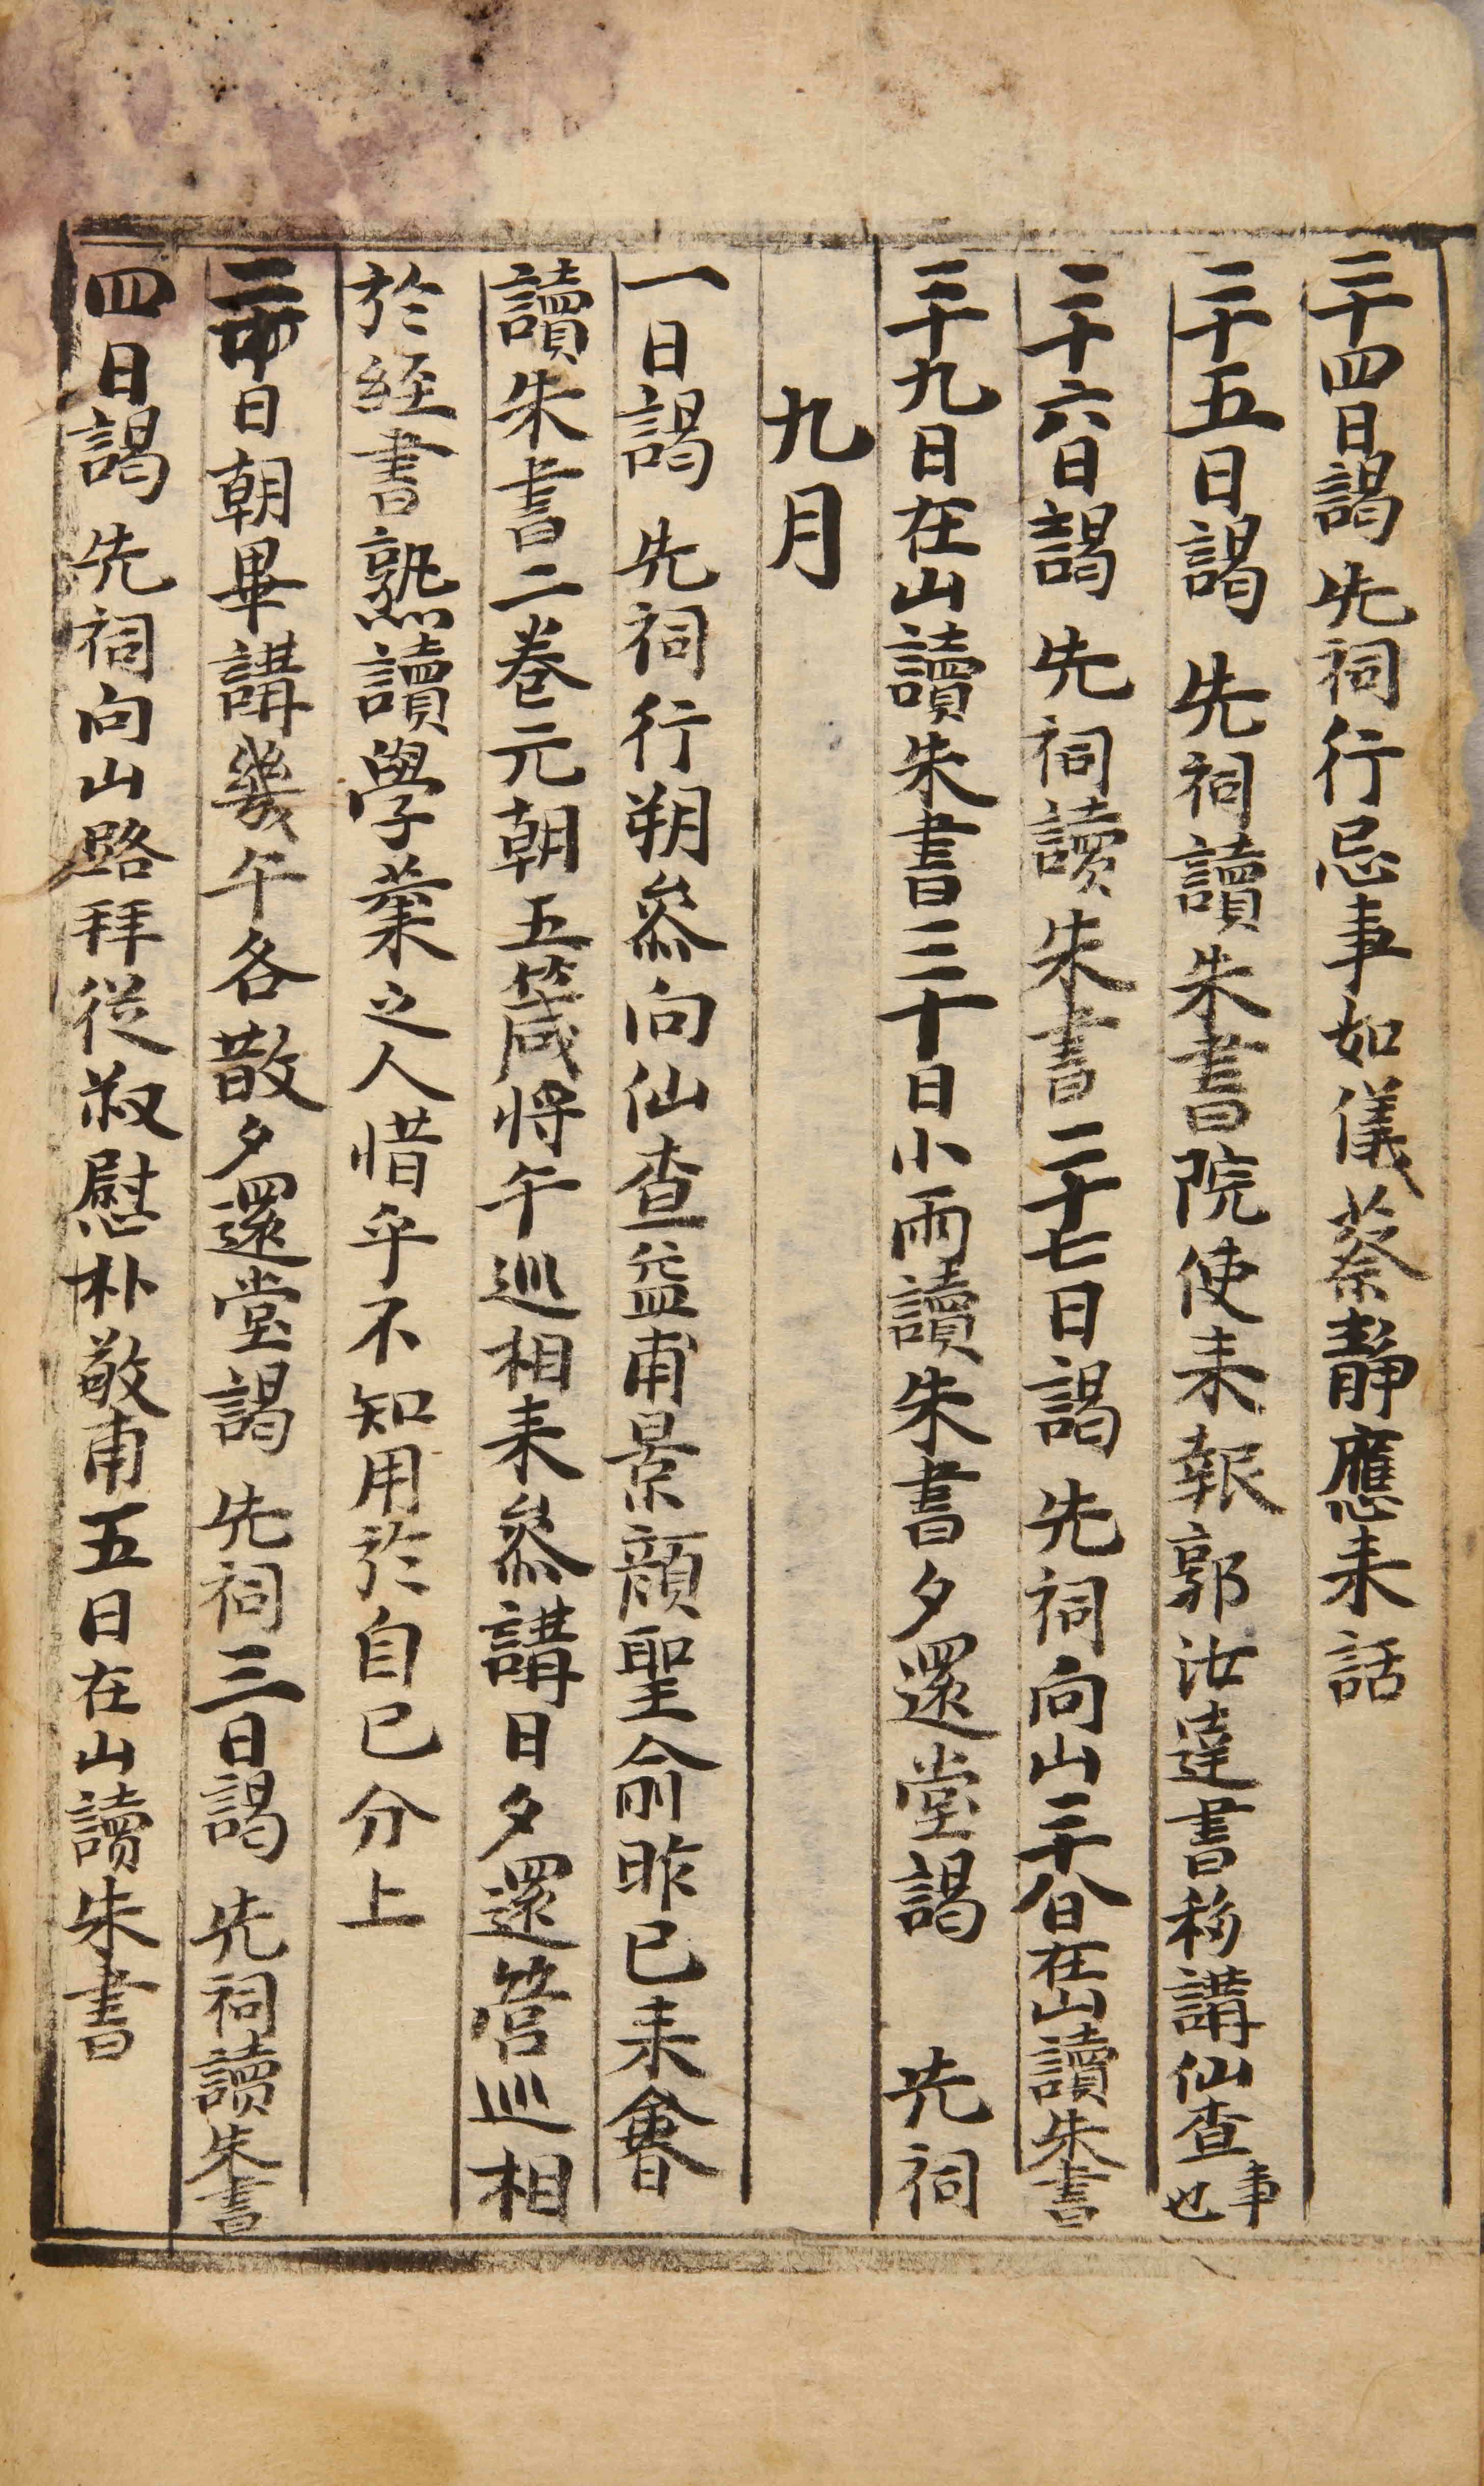 二十四日謁 先祠行忌事如儀蔡靜應来話
二十五日謁 先祠讀朱書院使来報郭汝達書移講仙查事也
二十六日謁 先祠讀朱書二十七日謁 先祠向山二十八日在山讀朱書
二十九日在山讀朱書三十日小雨讀朱書夕還堂謁 先祠
九月
一日謁 先祠行朔叅向仙查益甫景顔聖俞昨已来會
讀朱書二卷元朝五箴将午巡相来叅講日夕還営巡相
於経書熟讀學業之人惜乎不知用於自己分上
二日朝畢講幾午各散夕還堂謁 先祠三日謁 先祠讀朱書
四日謁 先祠向山路拜従叔慰朴敬甫五日在山讀朱書